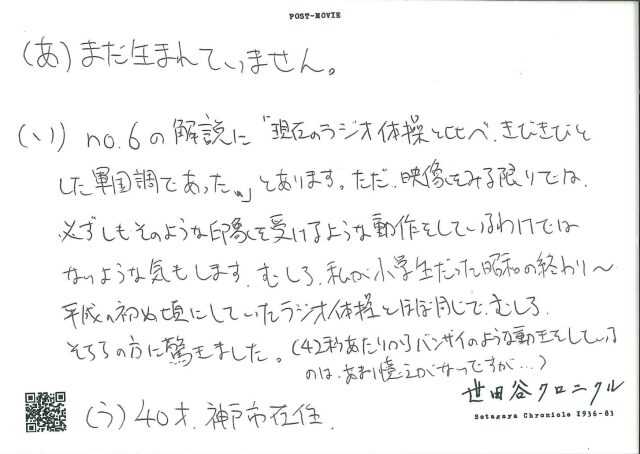 POST-MOVIE
(あ) まだ生まれていません。
(い) no.6の解説に「現在のラジオ体操と比べ、きびきびと
した軍国調であった。」とあります。ただ、映像をみる限りでは、
必ずしもそのような印象を受けるような動作をしているわけでは
ないような気もします。むしろ、私が小学生だった昭和の終わり〜
平成の初め頃にしていたラジオ体操とほぼ同じで、むしろ
そちらの方に驚きました。(42秒あたりのバンザイのような動きをしている
のは、あまり憶えがなかったですが…)
世田谷クロニクル
Setagaya Chronicle 1936-83
(う) 40才、神戸市在住.